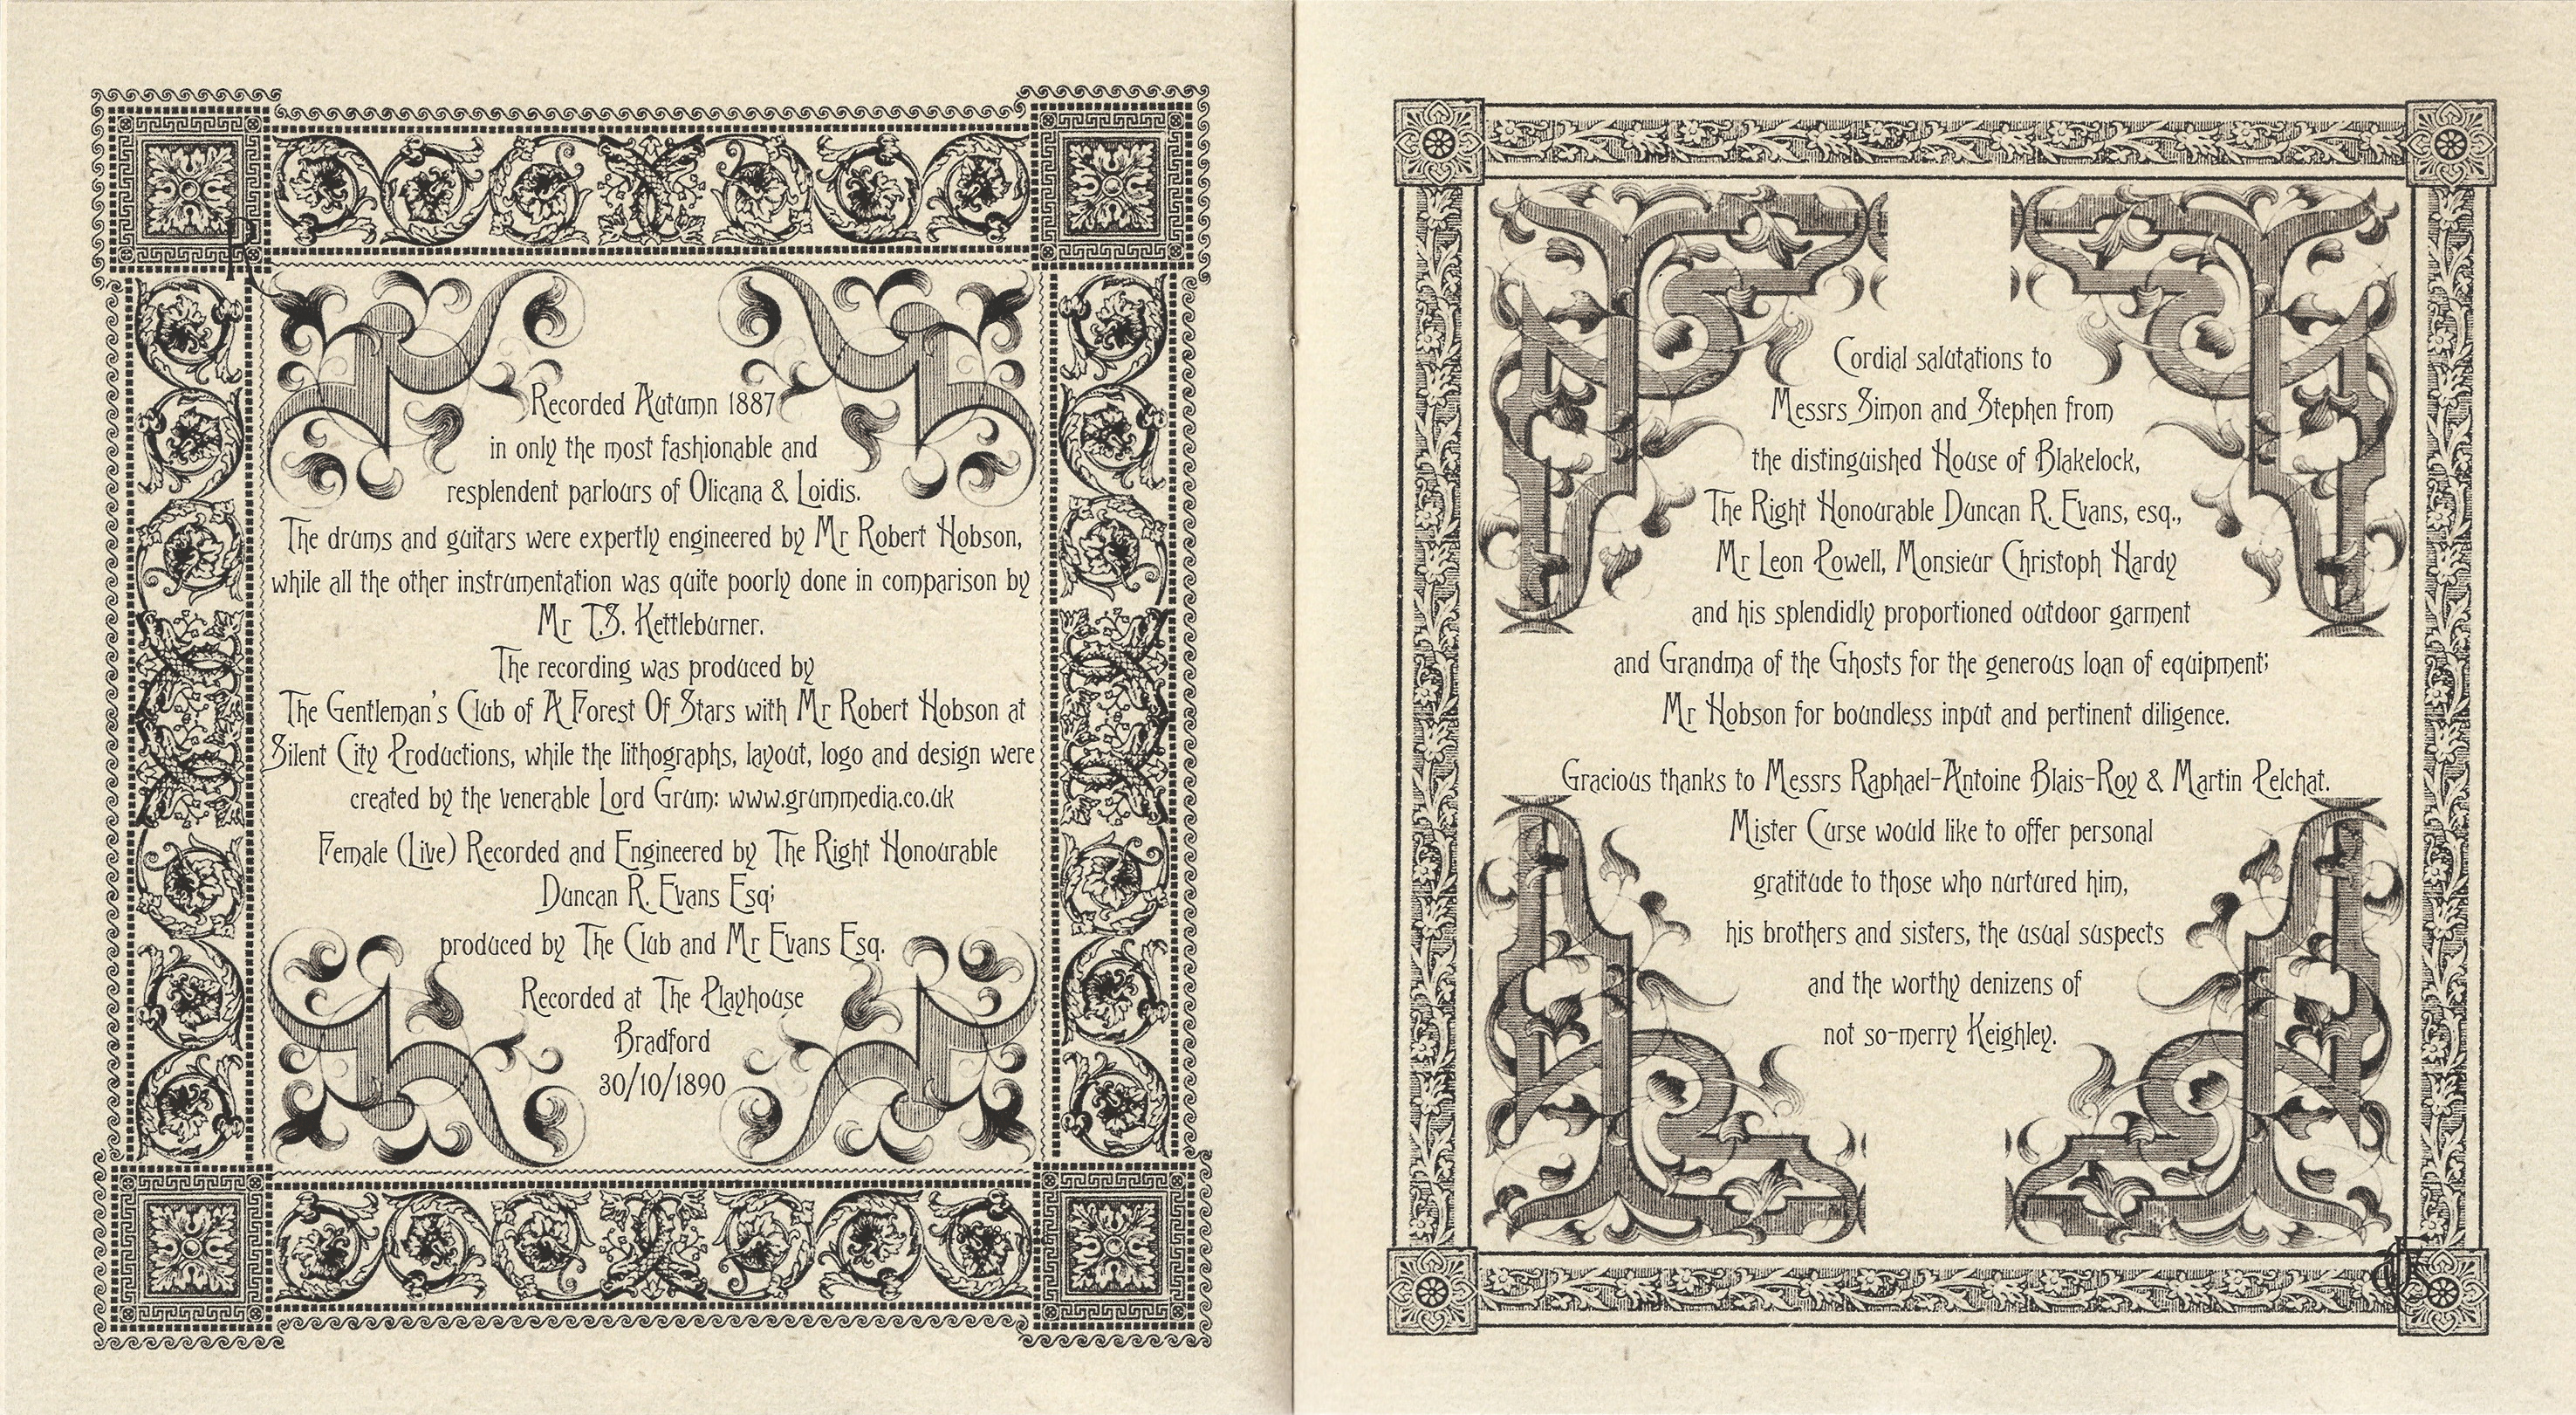 Recorded Autumn 1887
in only the most fashionable and
resplendent parlours of Olicana & Loidis.
The drums and guitars were expertly engineered by Mr Robert Hobson,
while all the other instrumentation was quite poorly done in comparison by
Mr T.S. Kettleburner.
The recording was produced by
The Gentleman's Club of A Forest Of Stars with Mr Robert Hobson at
Silent City Productions, while the lithographs, layout, logo and design were
created by the venerable Lord Grum: www.grummedia.co.uk
Female (Live) Recorded and Engineered by The Right Honourable
Duncan R. Evans Esq;
produced by The Club and Mr Evans Esq.
Recorded at The Playhouse
Bradford
30/10/1890
Cordial salutations to
Messrs Simon and Stephen from
the distinguished House of Blakelock,
The Right Honourable Duncan R. Evans, esq.,
Mr Leon Powell, Monsieur Christoph Hardy
and his splendidly proportioned outdoor garment
and Grandma of the Ghosts for the generous loan of equipment;
Mr Hobson for boundless input and pertinent diligence.
Gracious thanks to Messrs Raphael-Antoine Blais-Roy & Martin Pelchat.
Mister Curse would like to offer personal
gratitude to those who nurtured him,
his brothers and sisters, the usual suspects
and the worthy denizens of
not so-merry Keighley.